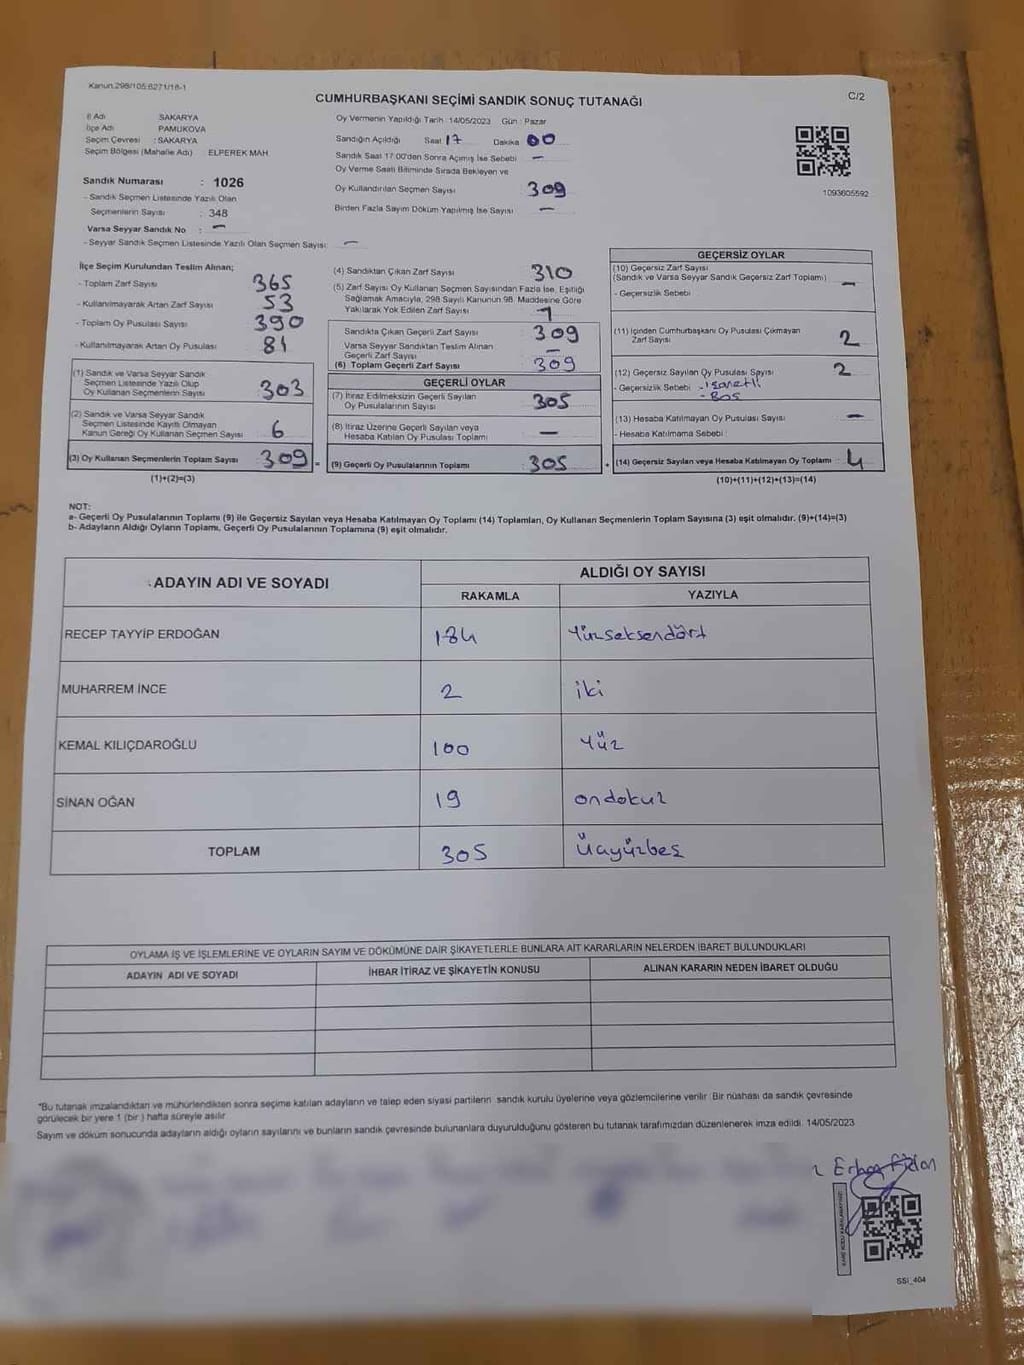 Kanun:298/105;6271/16-1
C/2
CUMHURBAŞKANI SEÇİMİ SANDIK SONUÇ TUTANAĞI
İl Adı SAKARYA
İlçe Adı PAMUKOVA
Seçim Çevresi : SAKARYA
Seçim Bölgesi (Mahalle Adı) : ELPEREK MAH.
Oy Vermenin Yapıldığı Tarih : 14/05/2023 Gün : Pazar
Sandığın Açıldığı Saat 17 Dakika 00
Sandık Saat 17:00'den Sonra Açılmış İse Sebebi —
Oy Verme Saati Bitiminde Sırada Bekleyen ve
Oy Kullandırılan Seçmen Sayısı 309
Birden Fazla Sayım Döküm Yapılmış İse Sayısı —
1093605592
Sandık Numarası : 1026
- Sandık Seçmen Listesinde Yazılı Olan
Seçmenlerin Sayısı : 348
Varsa Seyyar Sandık No : —
- Seyyar Sandık Seçmen Listesinde Yazılı Olan Seçmen Sayısı: —
İlçe Seçim Kurulundan Teslim Alınan;
- Toplam Zarf Sayısı 365
- Kullanılmayarak Artan Zarf Sayısı 53
- Toplam Oy Pusulası Sayısı 390
- Kullanılmayarak Artan Oy Pusulası 81
(1) Sandık ve Varsa Seyyar Sandık
Seçmen Listesinde Yazılı Olup
Oy Kullanan Seçmenlerin Sayısı 303
(2) Sandık ve Varsa Seyyar Sandık
Seçmen Listesinde Kayıtlı Olmayan
Kanun Gereği Oy Kullanan Seçmen Sayısı 6
(3) Oy Kullanan Seçmenlerin Toplam Sayısı 309 =
(1)+(2)=(3)
(4) Sandıktan Çıkan Zarf Sayısı 310
(5) Zarf Sayısı Oy Kullanan Seçmen Sayısından Fazla İse, Eşitliği
Sağlamak Amacıyla, 298 Sayılı Kanunun 98. Maddesine Göre
Yakılarak Yok Edilen Zarf Sayısı 1
Sandıkta Çıkan Geçerli Zarf Sayısı 309
Varsa Seyyar Sandıktan Teslim Alınan
Geçerli Zarf Sayısı —
(6) Toplam Geçerli Zarf Sayısı 309
GEÇERLİ OYLAR
(7) İtiraz Edilmeksizin Geçerli Sayılan
Oy Pusulalarının Sayısı 305
(8) İtiraz Üzerine Geçerli Sayılan veya
Hesaba Katılan Oy Pusulası Toplamı —
(9) Geçerli Oy Pusulalarının Toplamı 305 +
GEÇERSİZ OYLAR
(10) Geçersiz Zarf Sayısı
(Sandık ve Varsa Seyyar Sandık Geçersiz Zarf Toplamı) —
- Geçersizlik Sebebi
(11) İçinden Cumhurbaşkanı Oy Pusulası Çıkmayan
Zarf Sayısı 2
(12) Geçersiz Sayılan Oy Pusulası Sayısı 2
- Geçersizlik Sebebi - işaretli
- Boş
(13) Hesaba Katılmayan Oy Pusulası Sayısı —
- Hesaba Katılmama Sebebi
(14) Geçersiz Sayılan veya Hesaba Katılmayan Oy Toplamı : 4
(10)+(11)+(12)+(13)=(14)
NOT:
a- Geçerli Oy Pusulalarının Toplamı (9) ile Geçersiz Sayılan veya Hesaba Katılmayan Oy Toplamı (14) Toplamları, Oy Kullanan Seçmenlerin Toplam Sayısına (3) eşit olmalıdır. (9)+(14)=(3)
b- Adayların Aldığı Oyların Toplamı, Geçerli Oy Pusulalarının Toplamına (9) eşit olmalıdır.
ADAYIN ADI VE SOYADI ALDIĞI OY SAYISI
RAKAMLA YAZIYLA
RECEP TAYYİP ERDOĞAN 184 Yüzseksendört
MUHARREM İNCE 2 iki
KEMAL KILIÇDAROĞLU 100 Yüz
SİNAN OĞAN 19 ondokuz
TOPLAM 305 Üçyüzbeş
OYLAMA İŞ VE İŞLEMLERİNE VE OYLARIN SAYIM VE DÖKÜMÜNE DAİR ŞİKAYETLERLE BUNLARA AİT KARARLARIN NELERDEN İBARET BULUNDUKLARI
ADAYIN ADI VE SOYADI İHBAR İTİRAZ VE ŞİKAYETİN KONUSU ALINAN KARARIN NEDEN İBARET OLDUĞU
*Bu tutanak imzalandıktan ve mühürlendikten sonra seçime katılan adayların ve talep eden siyasi partilerin sandık kurulu üyelerine veya gözlemcilerine verilir. Bir nüshası da sandık çevresinde
görülecek bir yere 1 (bir ) hafta süreyle asılır.
Sayım ve döküm sonucunda adayların aldığı oyların sayılarını ve bunların sandık çevresinde bulunanlara duyurulduğunu gösteren bu tutanak tarafımızdan düzenlenerek imza edildi. 14/05/2023
SSI_404